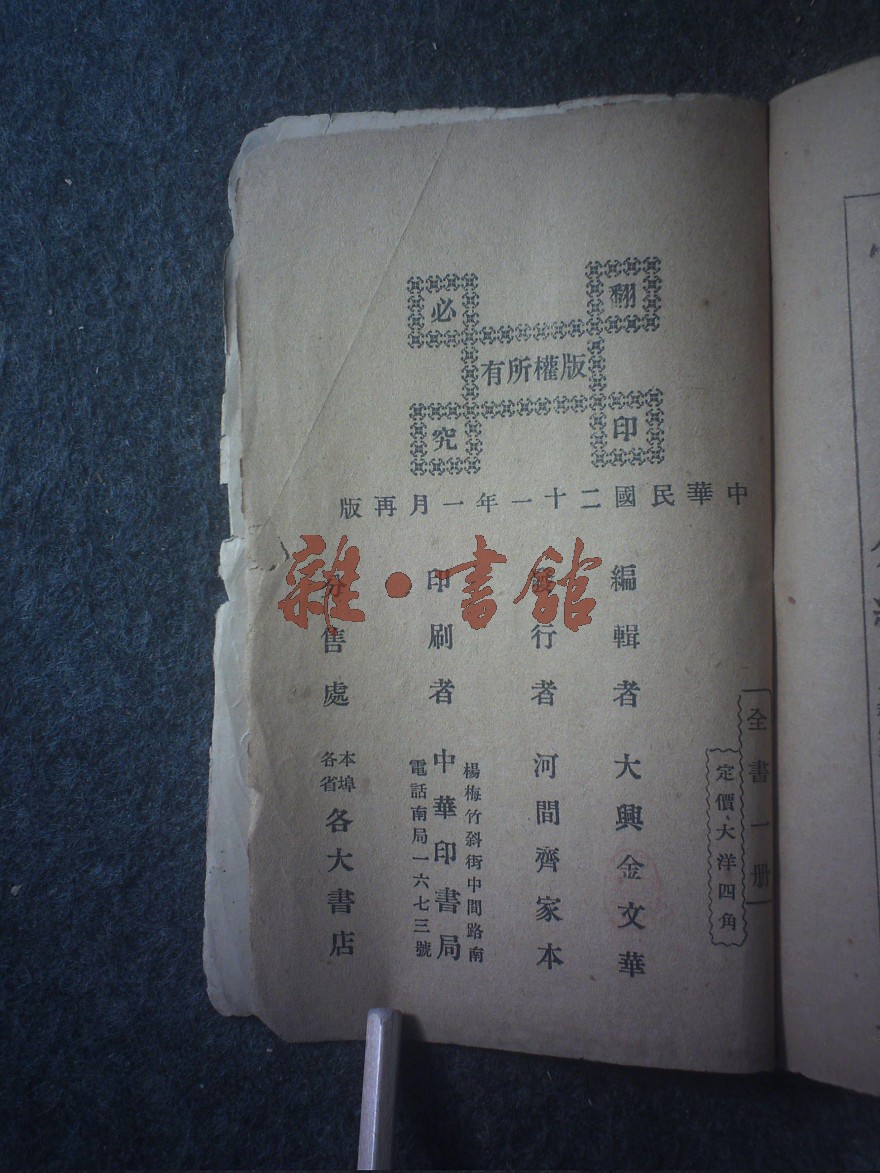 翻印
必究
版權所有
中華民國二十一年一月再版
全書一册
定價、大洋四角
編輯者 大興金文華
發行者 河間齊家本
楊梅竹斜街中間路南
印刷者 中華印書局
電話南局一六七三號
分售處 本埠各省 各大書店
雜·書館